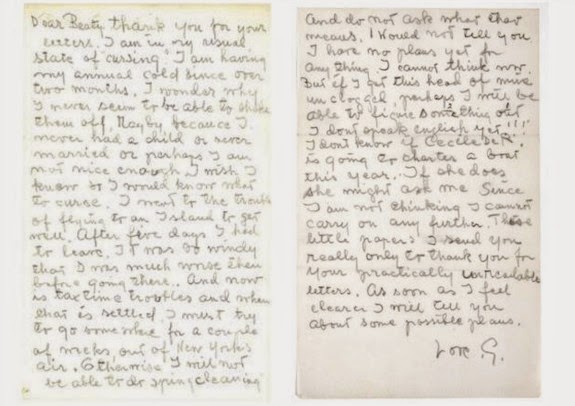 Dear Beaty thank you for your
letters. I am in my usual
state of cursing. I am having
my annual cold since over
two months. I wonder why
I never seem to be able to shake
them off. Mayby because I
never had a child or never
married or perhaps I am
not nice enough. I wish I
knew so I would know what
to curse. I went to the trouble
of flying to an Island to get
well. After five days I had
to leave. It was so windy
that I was much worse then
before going there.. And now
is tax time troubles and when
that is settled, I must try
to go somewhere for a couple
of weeks out of New York's
air. Otherwise I will not
be able to do spring cleaning
And do not ask what that
means. I Would not tell you
I have no plans yet for
any thing I cannot think now.
But if I get this head of mine
unclogged, perhaps I will be
able to figure something out
I dont speak english yet.!!!
I dont know if Cecile de R.
is going to charter a boat
this year. If she does
she might ask me Since
I am not thinking I cannot
carry on any further. These
little papers I send you
really only to thank you for
your practically unreadable
letters. As soon as I feel
clearer I will tell you
about some possible plans.
G.